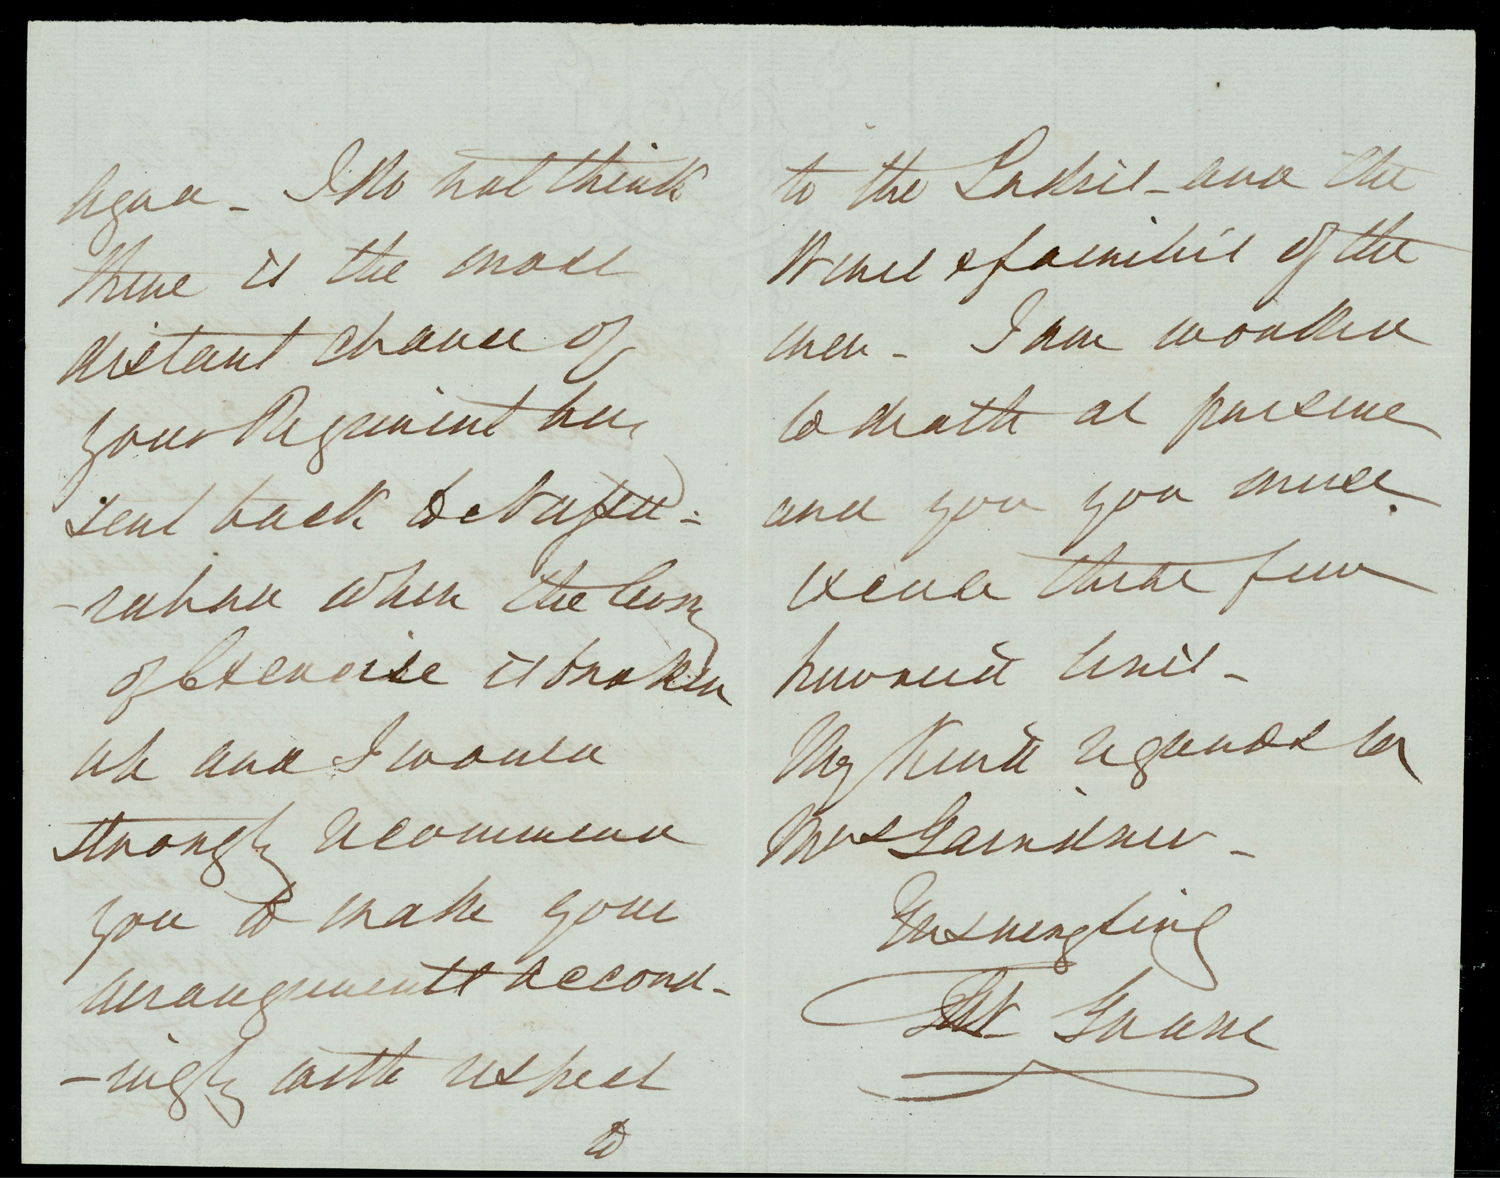 Agra - I do not think
there is the most
distant chance of
your Regiment being
sent back to
-rabad when the Camp
of Exercise is broken
up and I would
strongly recommend
you to make your
arrangements accord-
-ingly with respect
to
to the Ladies - and the
Wives & families of the
men - I am worked
to death at present
and you you must
excuse these few
hurried lines -
My kind regards to
Mrs Gairdner -
Ever sincerely
Grant